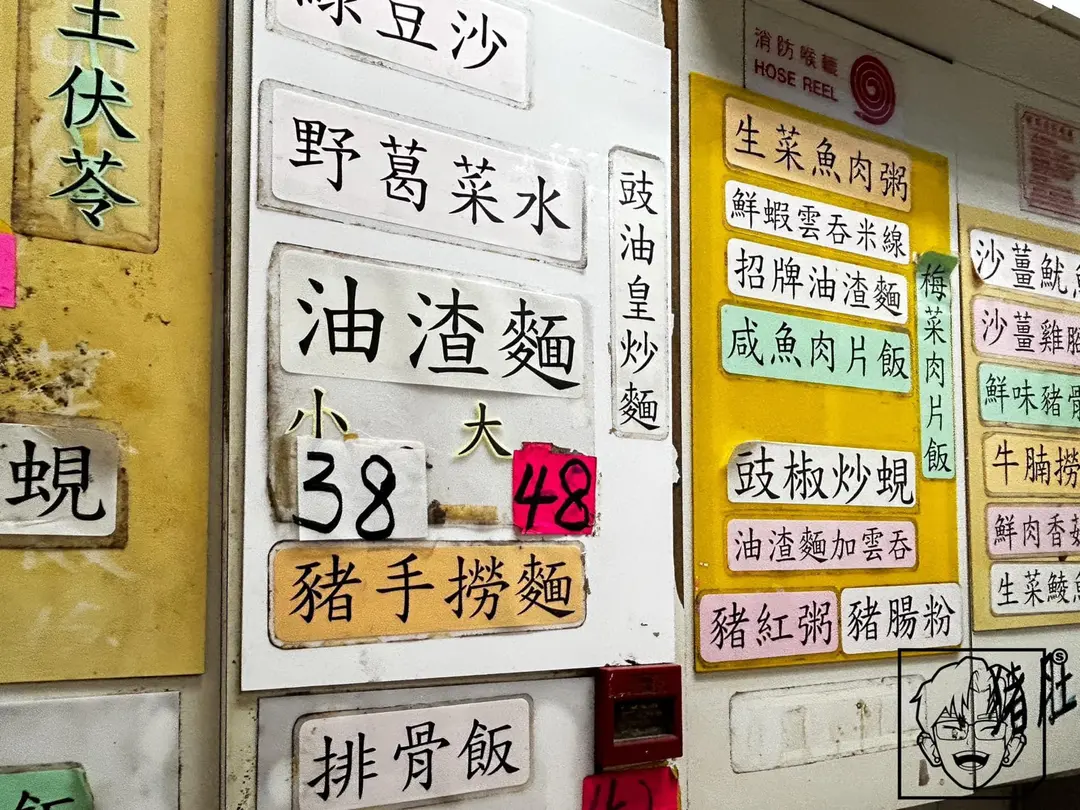 土伏苓
蜆
綠豆沙
野葛菜水
油渣麵
小 大
38 48
豬手撈麵
豉油皇炒麵
排骨飯
消防喉轆
HOSE REEL
生菜魚肉粥
鮮蝦雲吞米線
招牌油渣麵
咸魚肉片飯
梅菜肉片飯
豉椒炒蜆
油渣麵加雲吞
豬紅粥
豬腸粉
沙薑魷
沙薑雞
鮮味豬骨
牛腩撈
鮮肉香菇
生菜鯪魚
飯
豬肚